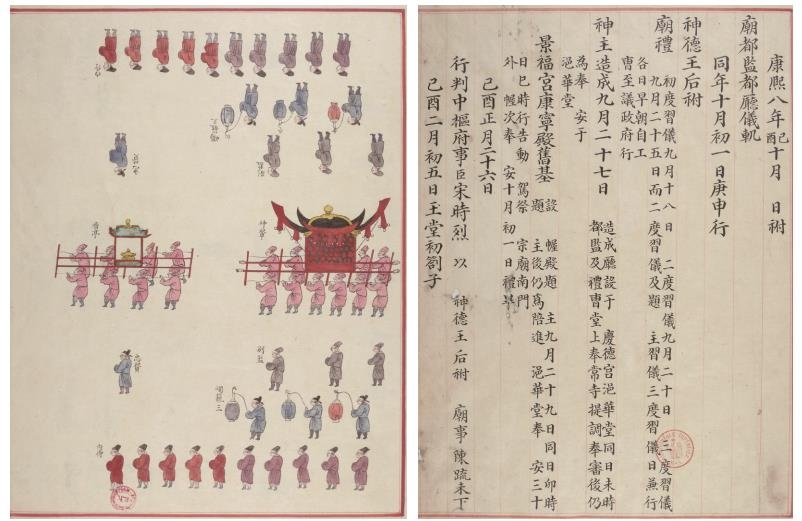 康熙八年己酉十月 日祔
廟都監都廳儀軌
同年十月初一日庚申行
神德王后祔
廟禮
初度習儀九月十八日 二度習儀九月二十日 三度習儀
九月二十五日而二度習儀及題 主習儀三度習儀日兼行
各日早朝自工
曹至議政府行
神主造成九月二十七日
造成廳設于 慶德宮浥華堂同日未時
都監及禮曹堂上奉常寺提調奉審後仍
為奉 安于
浥華堂
景福宮康寧殿舊基
設 幄殿題 主九月二十九日同日卯時
題 主後仍爲陪進 浥華堂奉 安三十
日巳時行告動 駕祭 宗廟南門
外 幄次奉 安十月初一日禮畢
己酉正月二十六日
行判中樞府事臣宋時烈 以 神德王后祔 廟事陳疏未下
己酉二月初五日玉堂初箚子
神輦
別監
燭籠三